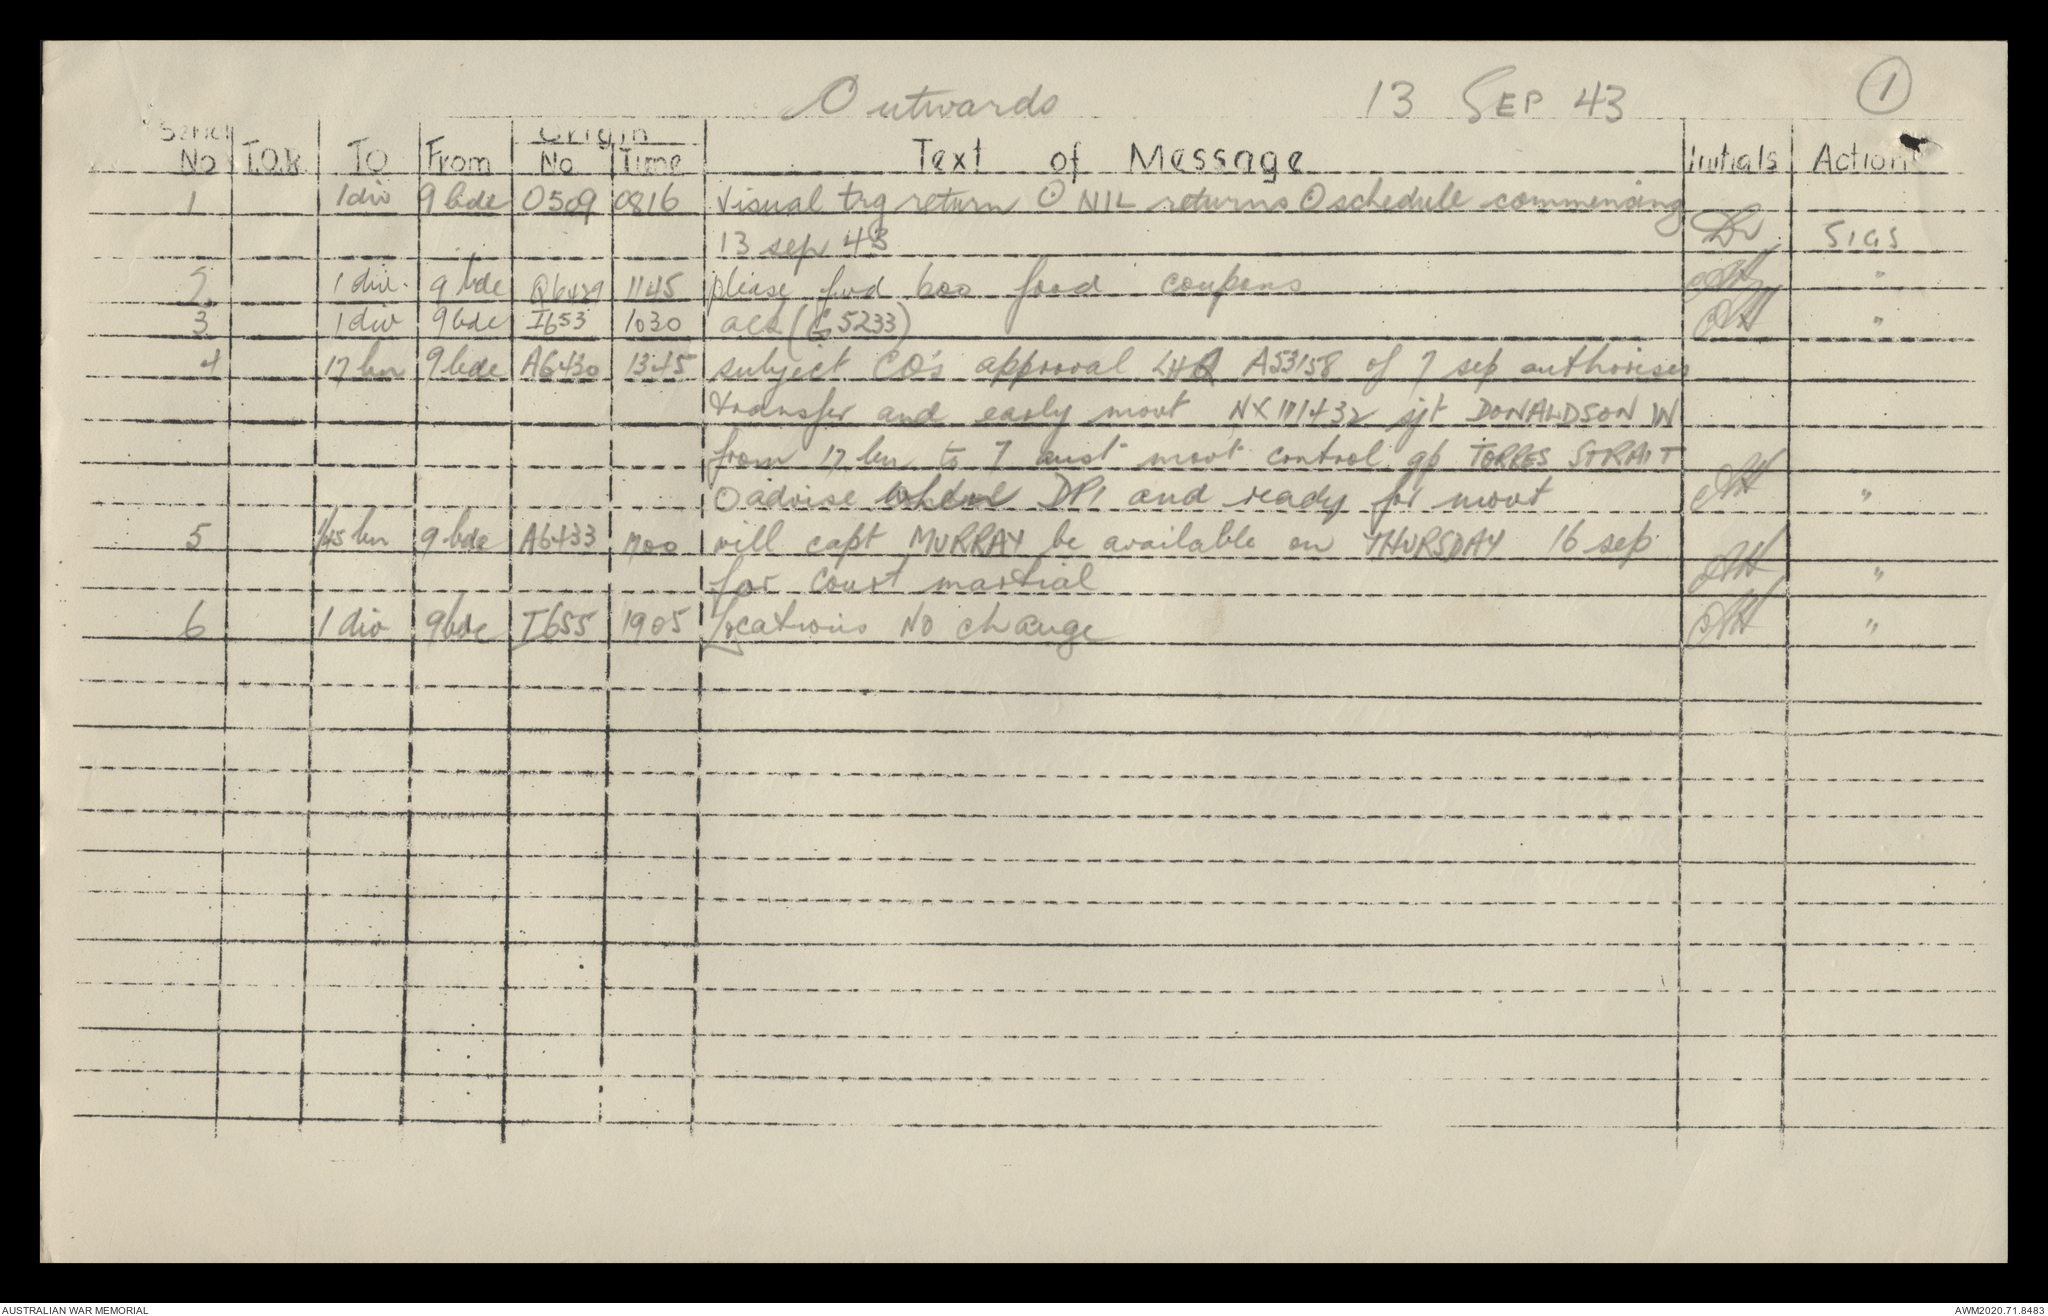 Outwards 13 SEP 43 1
Serial No T.O.R TO From Origin No Time Text of Message Initials Action
1 1 div 9 bde O509 0816 Visual trg return ⊙ NIL returns ⊙ schedule commencing
13 sep 43 SIGS
2 1 div. 9 bde Q6429 1145 please fwd 600 food coupons "
3 1 div 9 bde I653 1030 ack (G 5233) "
4 17 bn 9 bde A6430 1345 subject CO's approval LHQ A53158 of 7 sep authorises
transfer and early movt NX111432 sjt DONALDSON W
from 17 bn to 7 aust movt control gp TORRES STRAIT
O advise when DP1 and ready for movt "
5 1/45 bn 9 bde A6433 1700 will capt MURRAY be available on THURSDAY 16 sep
for court martial "
6 1 div 9 bde I655 1905 Locations No change "
AUSTRALIAN WAR MEMORIAL AWM2020.71.8483